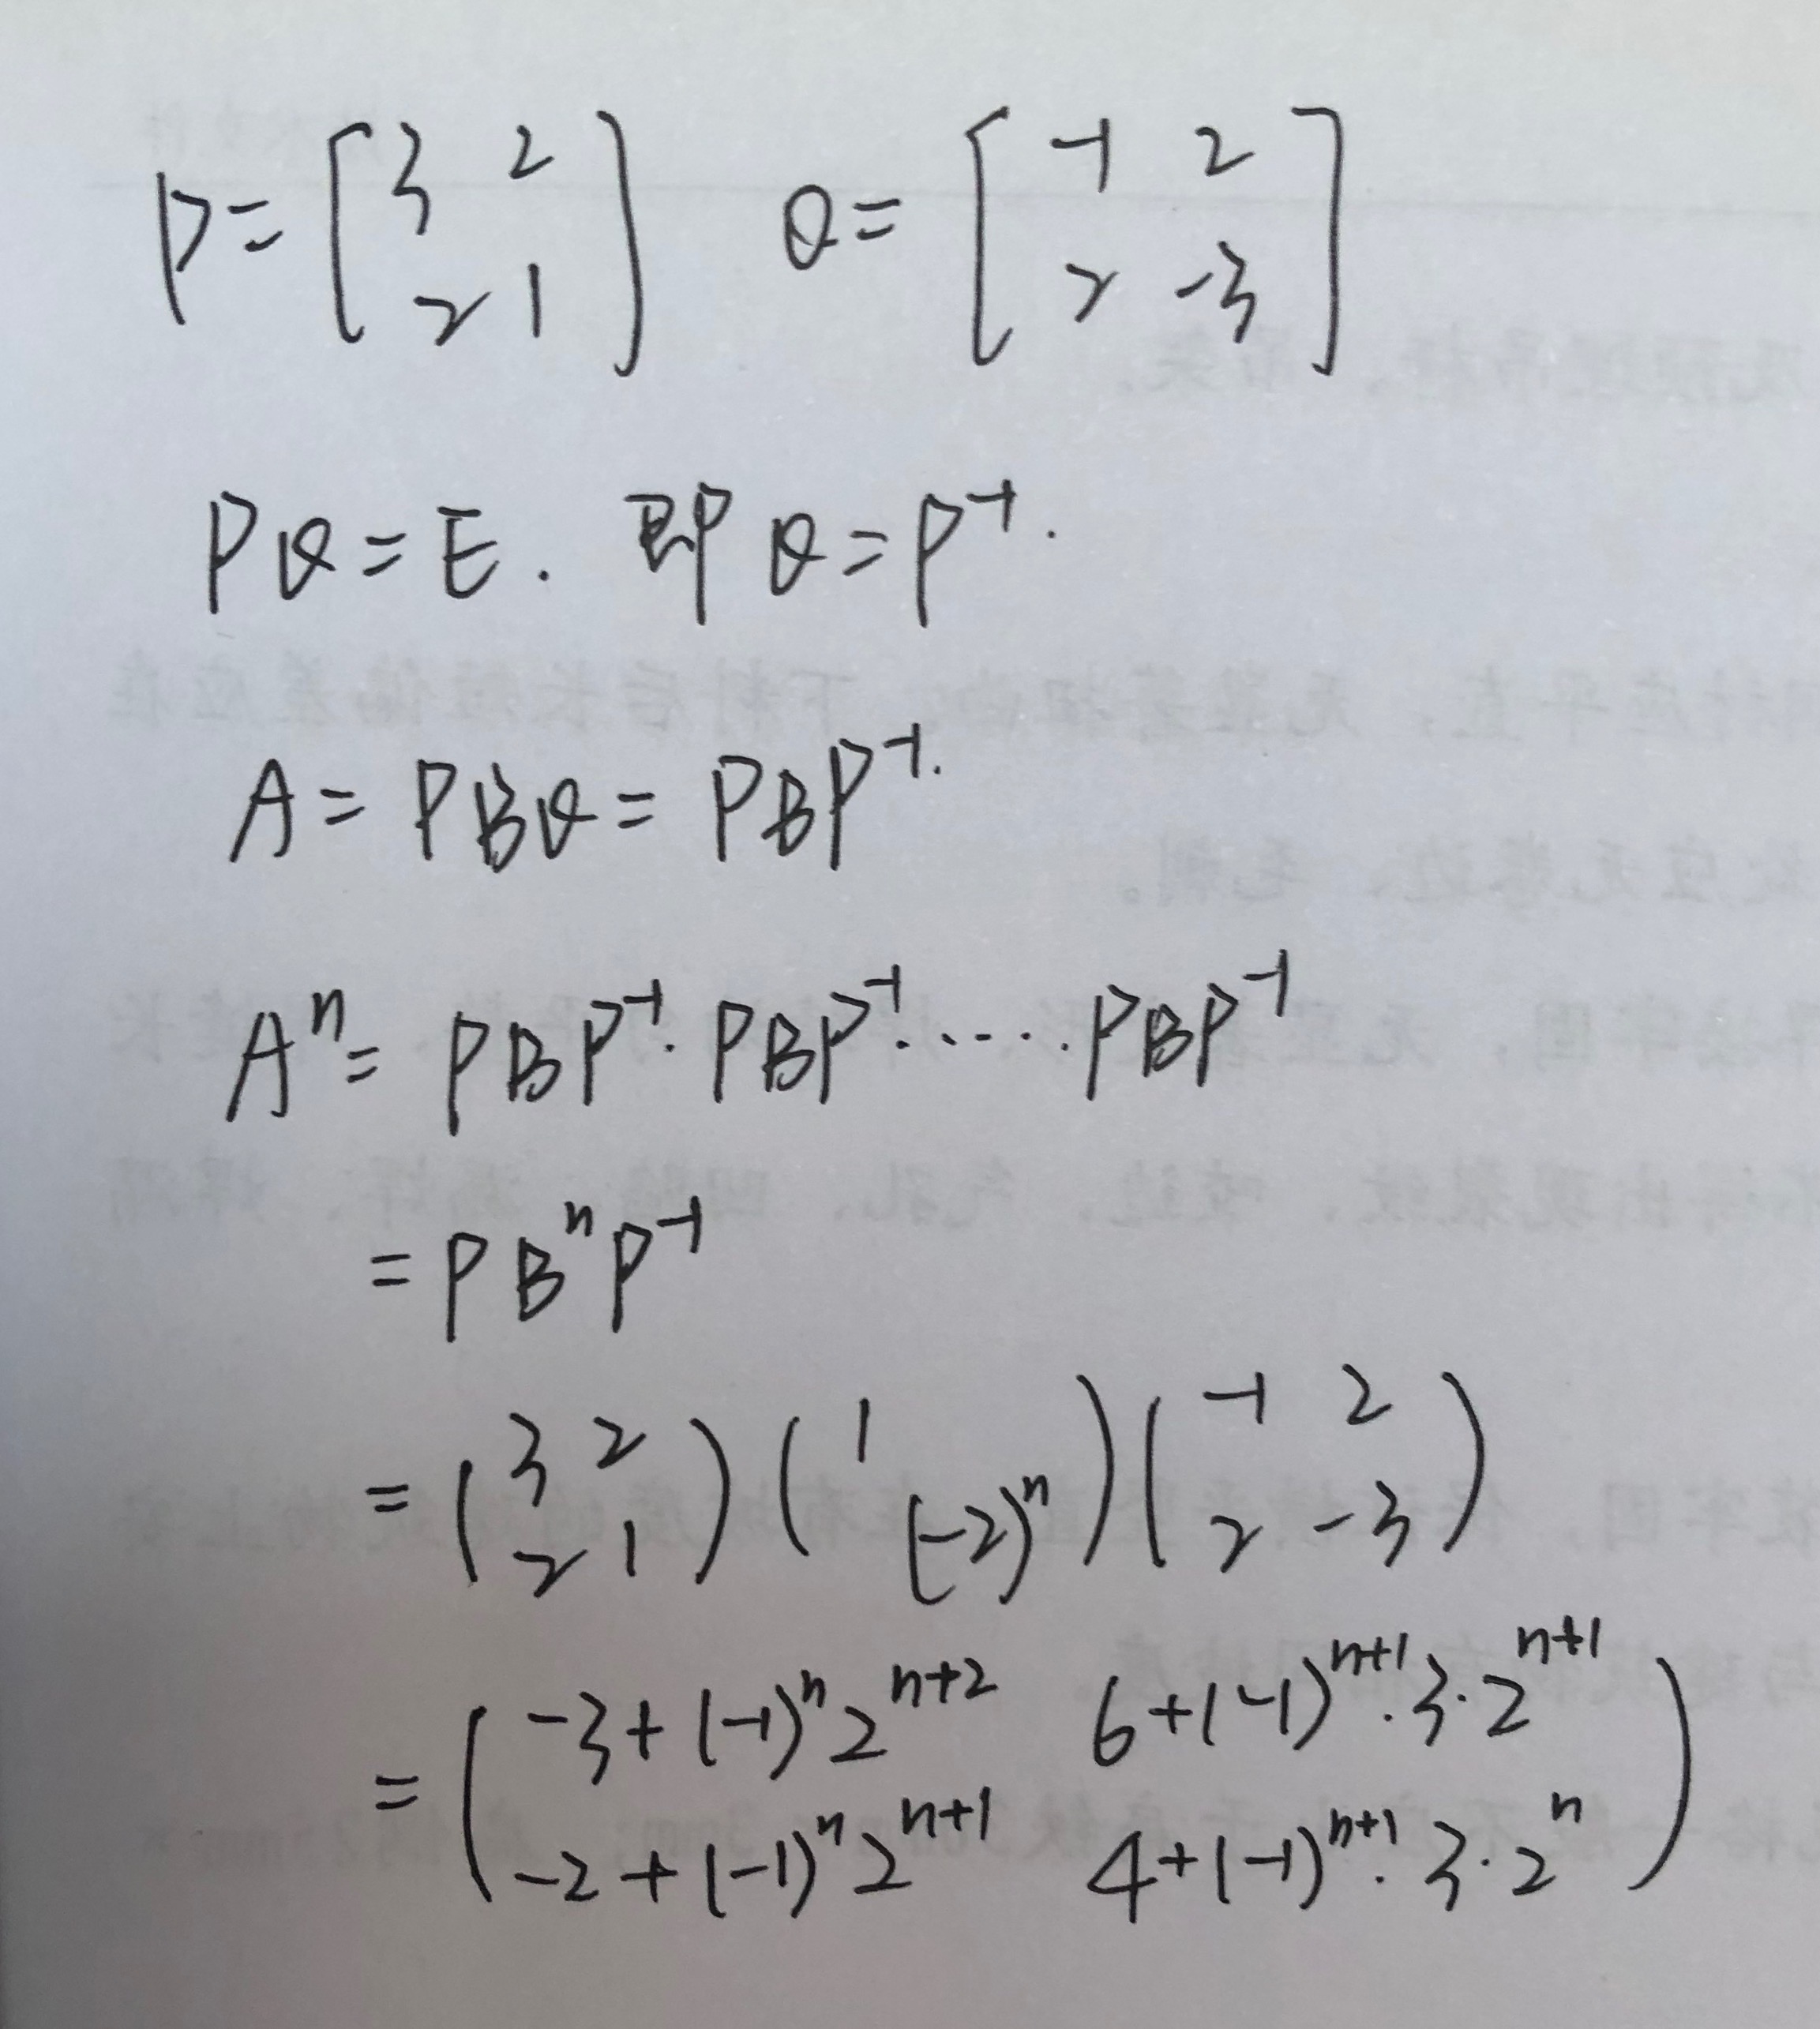 P = [3 2; 2 1] Q = [-1 2; 2 -3]
PQ = E. 即 Q = P⁻¹.
A = PBQ = PBP⁻¹.
Aⁿ = PBP⁻¹·PBP⁻¹·····PBP⁻¹
= PBⁿP⁻¹
= (3 2; 2 1)(1 ; (-2)ⁿ)(-1 2; 2 -3)
= (-3+(-1)ⁿ2ⁿ⁺² 6+(-1)ⁿ⁺¹·3·2ⁿ⁺¹; -2+(-1)ⁿ2ⁿ⁺¹ 4+(-1)ⁿ⁺¹·3·2ⁿ)